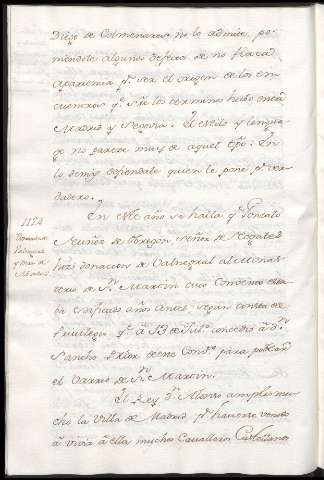 Diego de Colmenares no lo admite, po-
niendole algunos defectos de no flaca
aparencia pr. ser el origen de los en-
cuentros qe. sre. los terminos hubo entre
Madrid y Segovia. El estilo y lengua-
ge no parece muy de aquel tpo. En
lo demas defiendale quien le pone pr. ver-
dadero.
1124
En este año se halla qe. Gonzalo
Muñoz de Obregon Señor de
hizo donacion de Valnegral al Monas-
terio de Sn. Martin cuio Convento esta-
ba edificado años antes, segun consta de
Privilegio qe. a 13 de Julo. concedio a dn.
Sancho Prior de este Convto. para poblar
el Varrio de Sn. Martin.
El Rey dn. Alonso amplió mu-
cho la Villa de Madrid pr. haverse venido
a vivir a ella muchos Cavalleros Castellanos